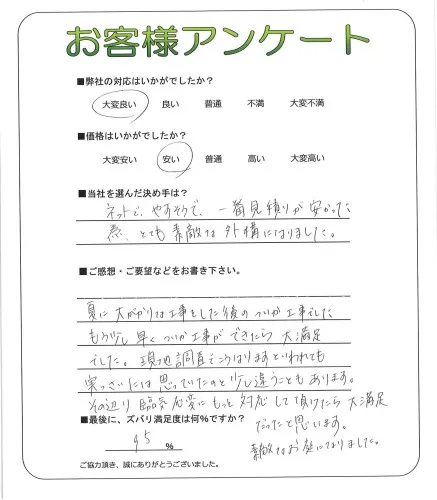 お客様アンケート
■弊社の対応はいかがでしたか？
大変良い 良い 普通 不満 大変不満
■価格はいかがでしたか？
大変安い 安い 普通 高い 大変高い
■当社を選んだ決め手は？
ネットで、やすそうで、一番見積りが安かった
為、とても素敵な外構になりました。
■ご感想・ご要望などをお書き下さい。
夏に大がかりな工事をした後のついか工事でした
もう少し早くついか工事ができたら大満足
でした。現地調査でこうなりますといわれても
実っさいには思っていたのと少し違うこともあります。
その辺り臨気応変にもっと対応して頂けたら大満足
だったと思います。
■最後に、ズバリ満足度は何%ですか？
95 %
素敵なお庭になりました。
ご協力頂き、誠にありがとうございました。